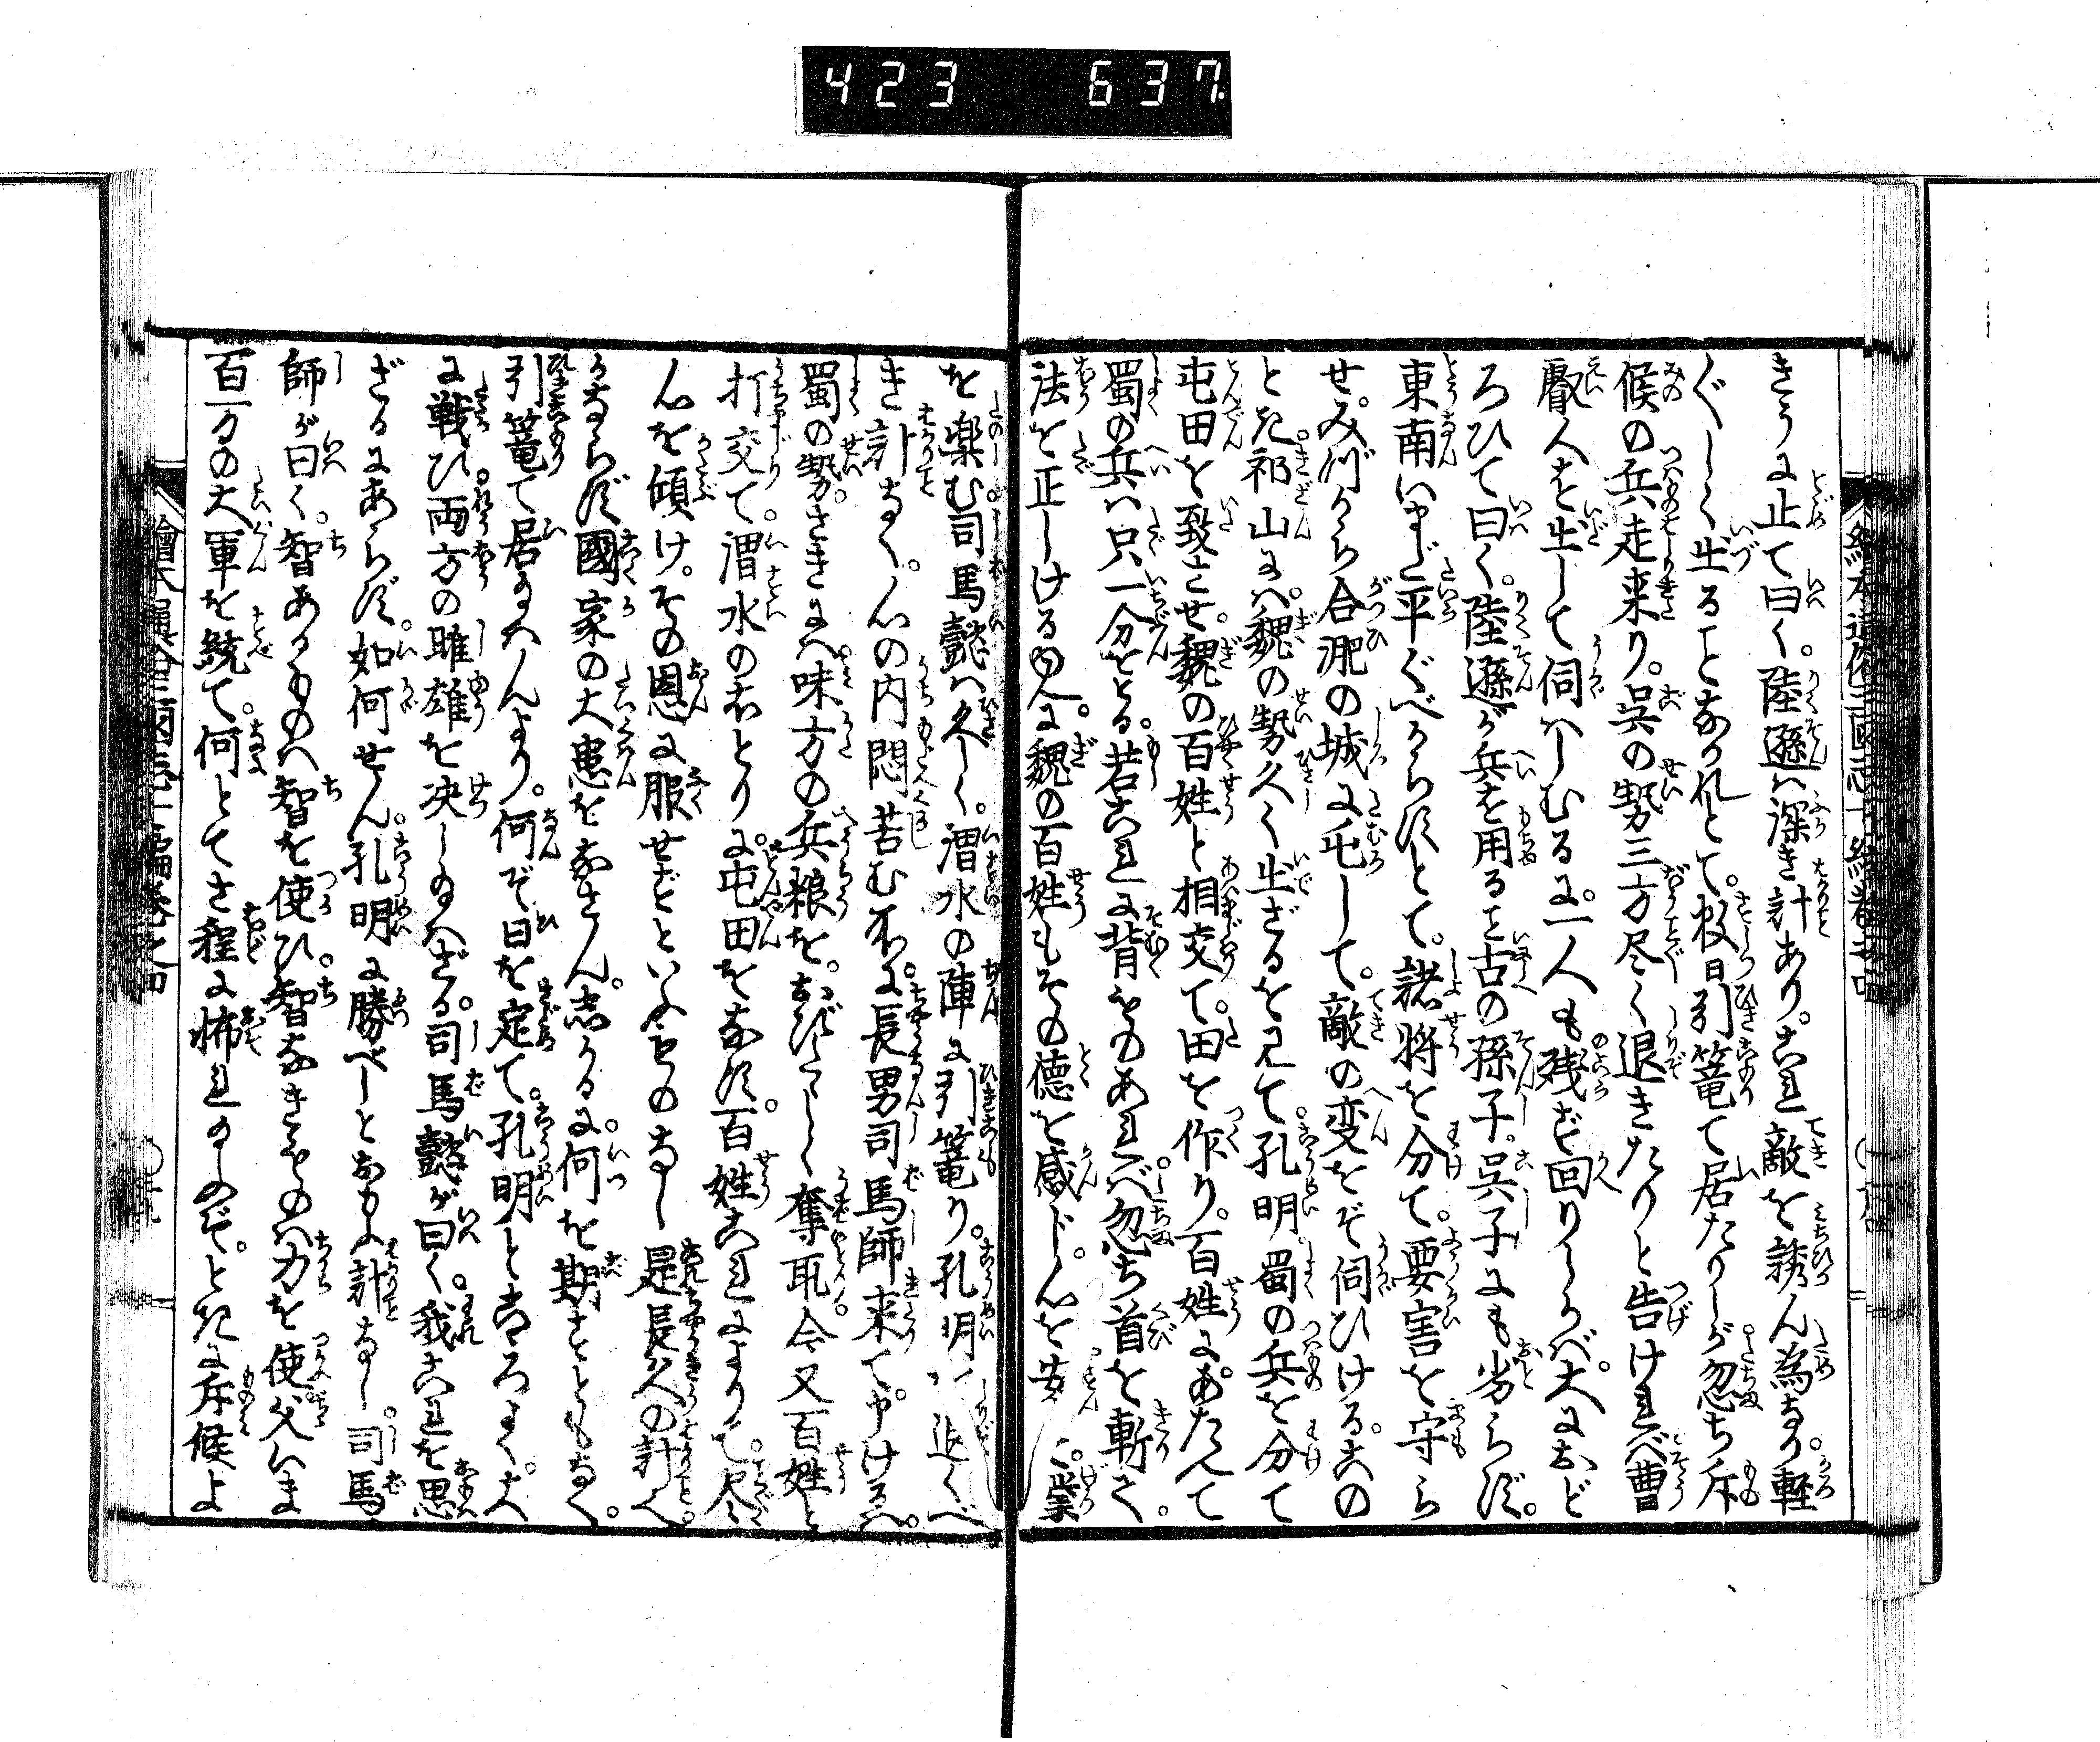 423 637
きうに止て曰く。陸遜は深き計あり。これ敵を誘ん為なり。軽
〴〵しく出ることなかれとて。数日引篭て居たりしが忽ち斥
候の兵走来り。呉の勢三方尽く退きたりと告けれバ曹
叡人を出して伺ハしむるに。一人も残ず回りしかバ。大におど
ろひて曰く。陸遜が兵を用ること古の孫子。呉子にも劣らず。
東南いまだ平ぐべからずとて。諸将を分て。要害を守ら
せ。みづから合淝の城に屯して。敵の変をぞ伺ひける。この
とき祁山にハ。魏の勢久く出ざるを見て。孔明蜀の兵を分て
屯田を致させ。魏の百姓と相交て。田を作り。百姓にあたへて
蜀の兵ハ只一分をとる。若これに背ものあれバ。忽ち首を斬て。
法を正しけるゆへに。魏の百姓もその徳を感じ。心を安んじ。業
を楽む司馬懿ハ久しく。渭水の陣に引篭り。孔明ハ退くべ
き計なく。心の内悶苦む所に。長男司馬師来て。申けるハ。
蜀の勢。さきにハ味方の兵粮を。おびたゞしく奪取。今又百姓と
打交て。渭水のほとりに。屯田をなす。百姓これによりて。尽く
心を傾け。その恩に服せずといふものなし是長久の計ハ。
かならず國家の大患をなさん。しかるに。何を期するともなく。
引篭て居給ハんより。何ぞ日を定て。孔明とこゝろよく。大
に戦ひ。両方の雌雄を决し給ハざる。司馬懿が曰く。我これを思
ざるにあらず。如何せん。孔明に勝べしとおもふ計なし。司馬
師が曰く。智あるものハ智を使ひ。智なきものハ力を使。父いま
百万の大軍を統て。何とてさ程に怖れ給ふぞ。ときに斥候よ